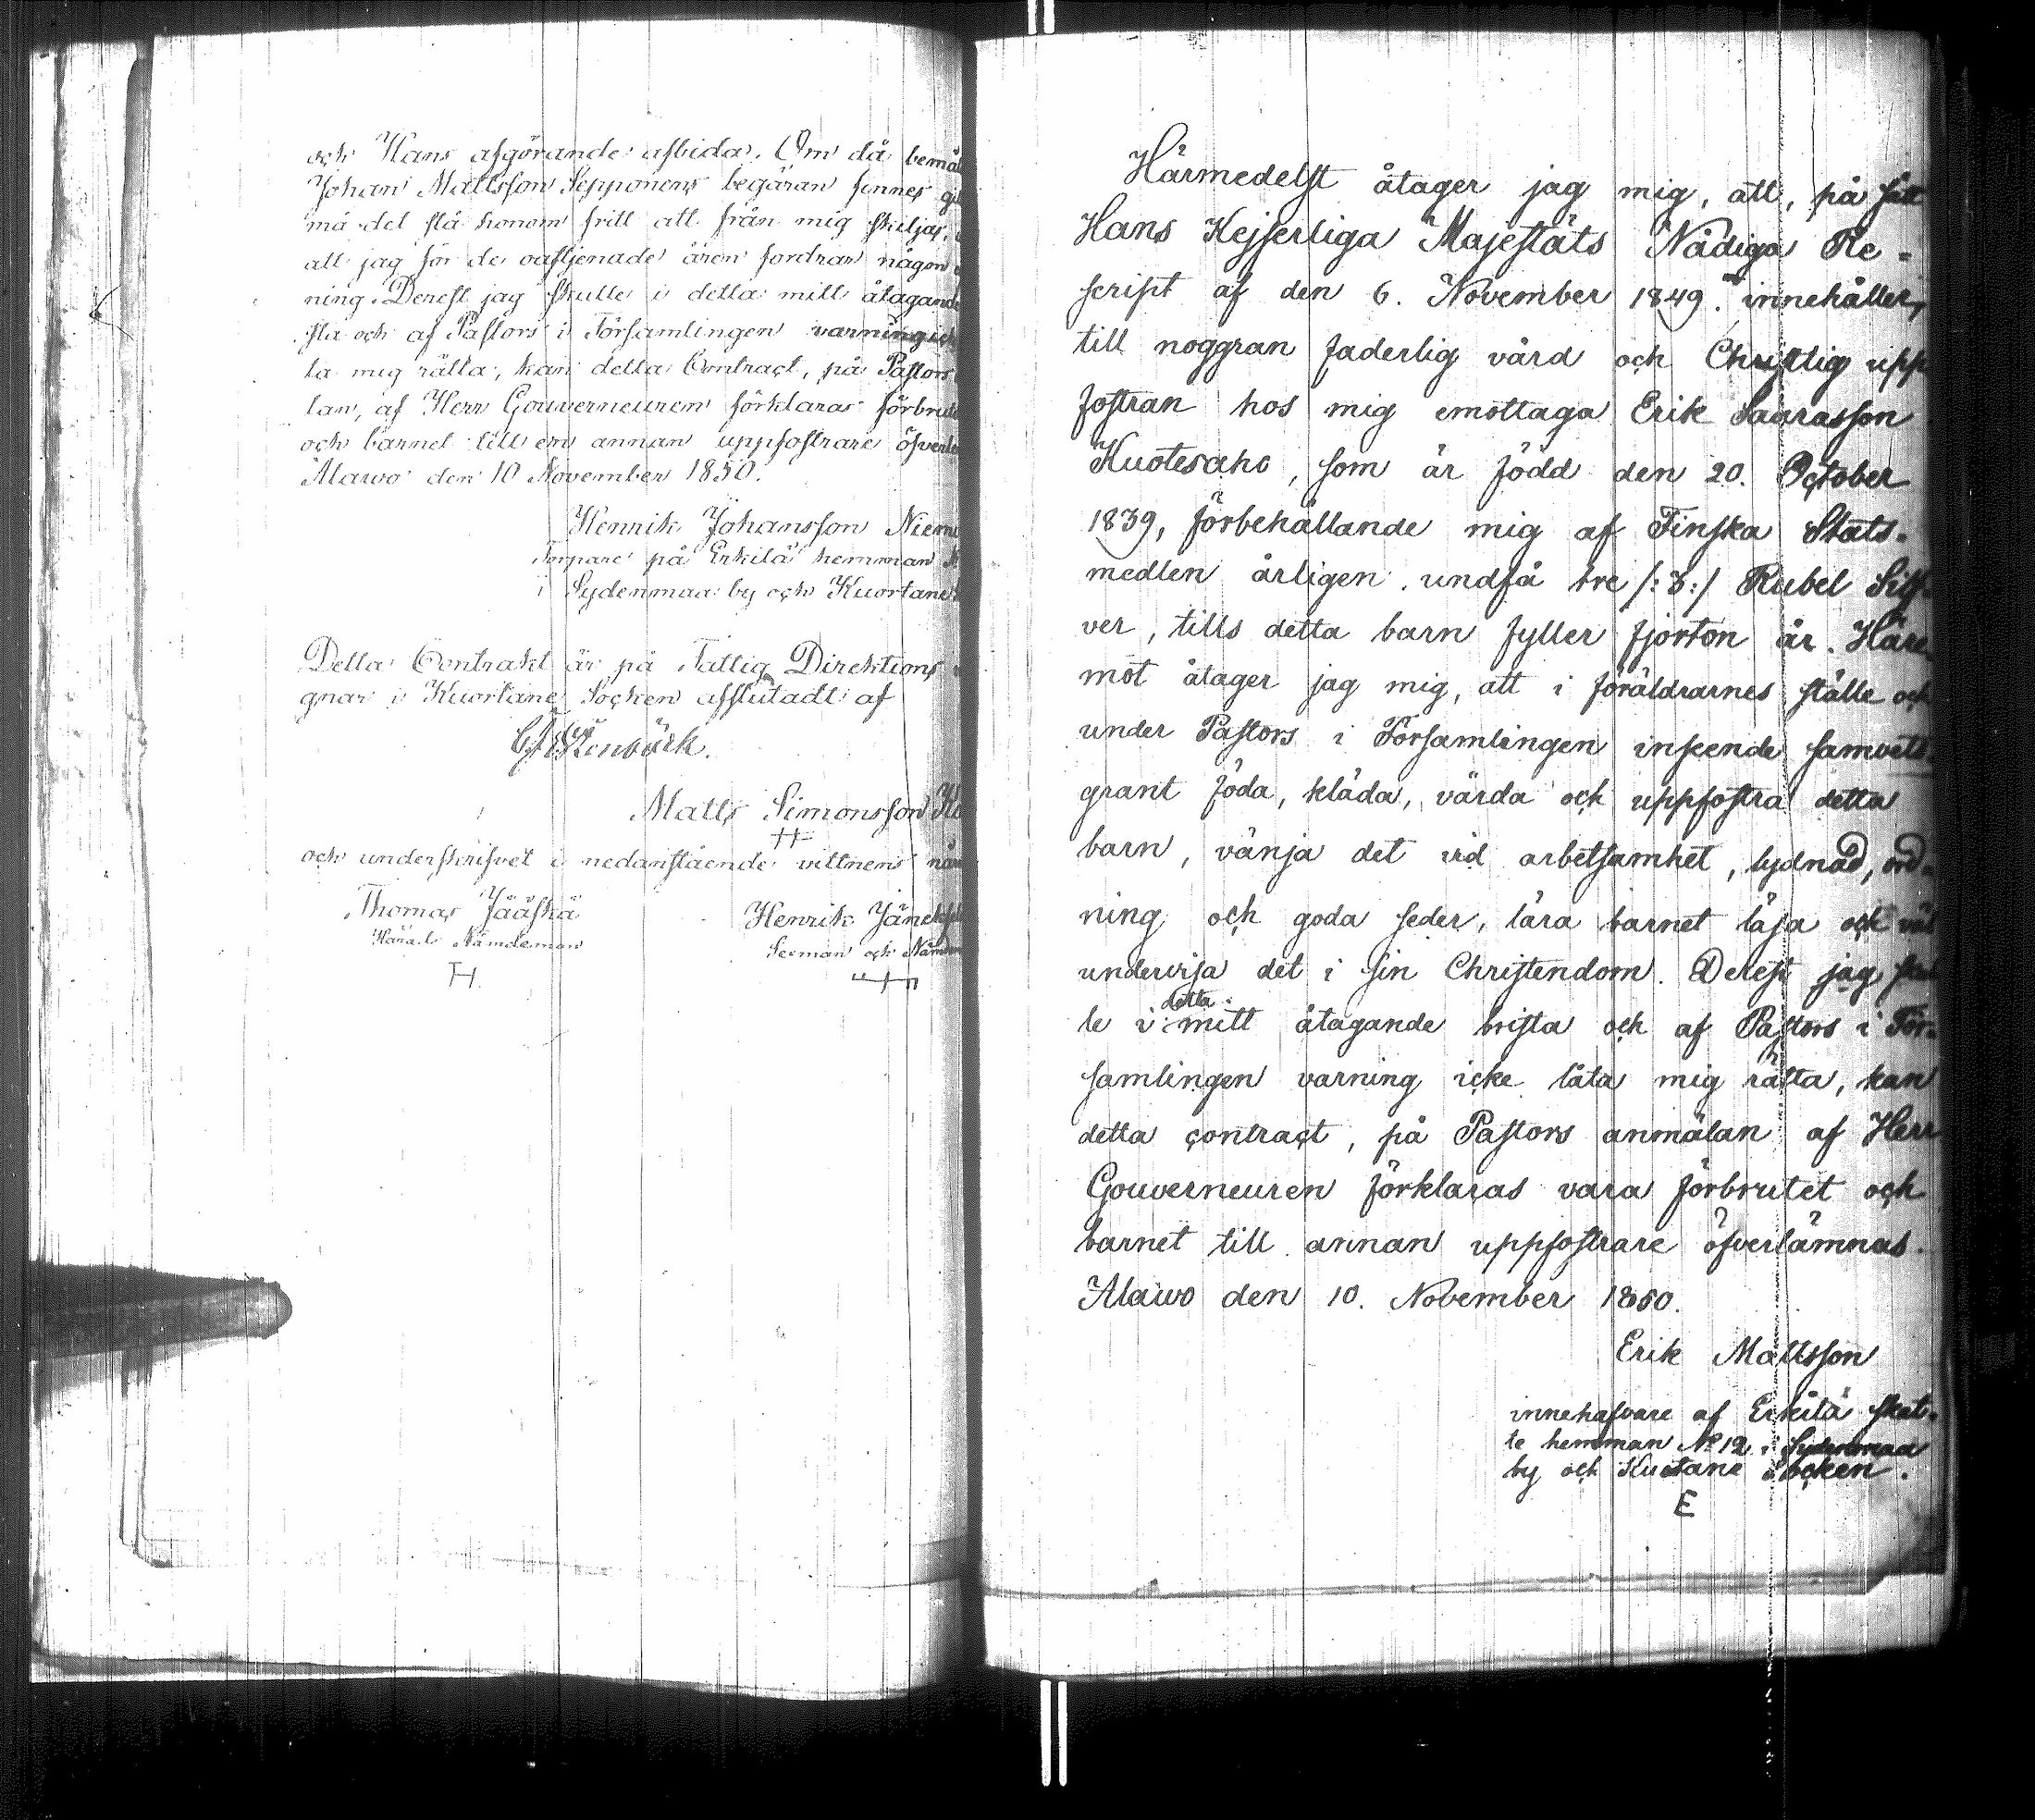 och Hans afgörande afbida. Om då bemäl
Johan Mattsson Sepponens begäran finnes
må det stå honom fritt att från mig skiljas,
att jag för de oaftjenade åren fordrar någon
ning. Derest jag skulle i detta mitt åtagande
sta och af Pastors i Församlingen varning ick
ta mig rätta, kan detta Contract, på Pastors
lan, af Herr Gouverneuren förklaras förbrut
och barnet till en annan uppfostrare öfverl
Alawo den 10 November 1850.
Henrik Johansson Niem
Torpare på Erkilä hemman N
i Sydenmaa by och Kuortane
Detta Contrakt är på Fattig Direktions
gnar i Kuortane Socken afslutadt af
Matts Simonsson
och underskrifvet i nedanstående vittnens när
Thomas Jääskä
Henrik Jänek
Härads Nämdeman
Sexman och Nämdem
Härmedelst åtager jag mig, att, på sätt
Hans Kejserliga Majestäts Nådiga Re-
script af den 6. November 1849. innehåller,
till noggran faderlig vård och Christlig upp
fostran hos mig emottaga Erik Saarasson
Kuotesaho, som är född den 20. October
1839, förbehållande mig af Finska Stats-
medlen årligen undfå tre /:3:/ Rubel Silf-
ver, tills detta barn fyller fjorton år. Häre
mot åtager jag mig, att i föräldrarnes ställe och
under Pastors i Församlingen inseende samvets-
grant föda, kläda, vårda och uppfostra detta
barn, vänja det vid arbetsamhet, lydnad, ord-
ning och goda seder, lära barnet läsa och väl
undervisa det i sin Christendom. Derest jag skul
le i detta mitt åtagande brista och af Pastors i För-
samlingen varning icke låta mig rätta, kan
detta contract, på Pastors anmälan af Herr
Gouverneuren förklaras vara förbrutet och
barnet till annan uppfostrare öfverlämnas.
Alawo den 10. November 1850.
Erik Mattsson
innehafvare af Erkilä skat-
te hemman No 12 i Sydenmaa
by och Kuotane Socken.
E